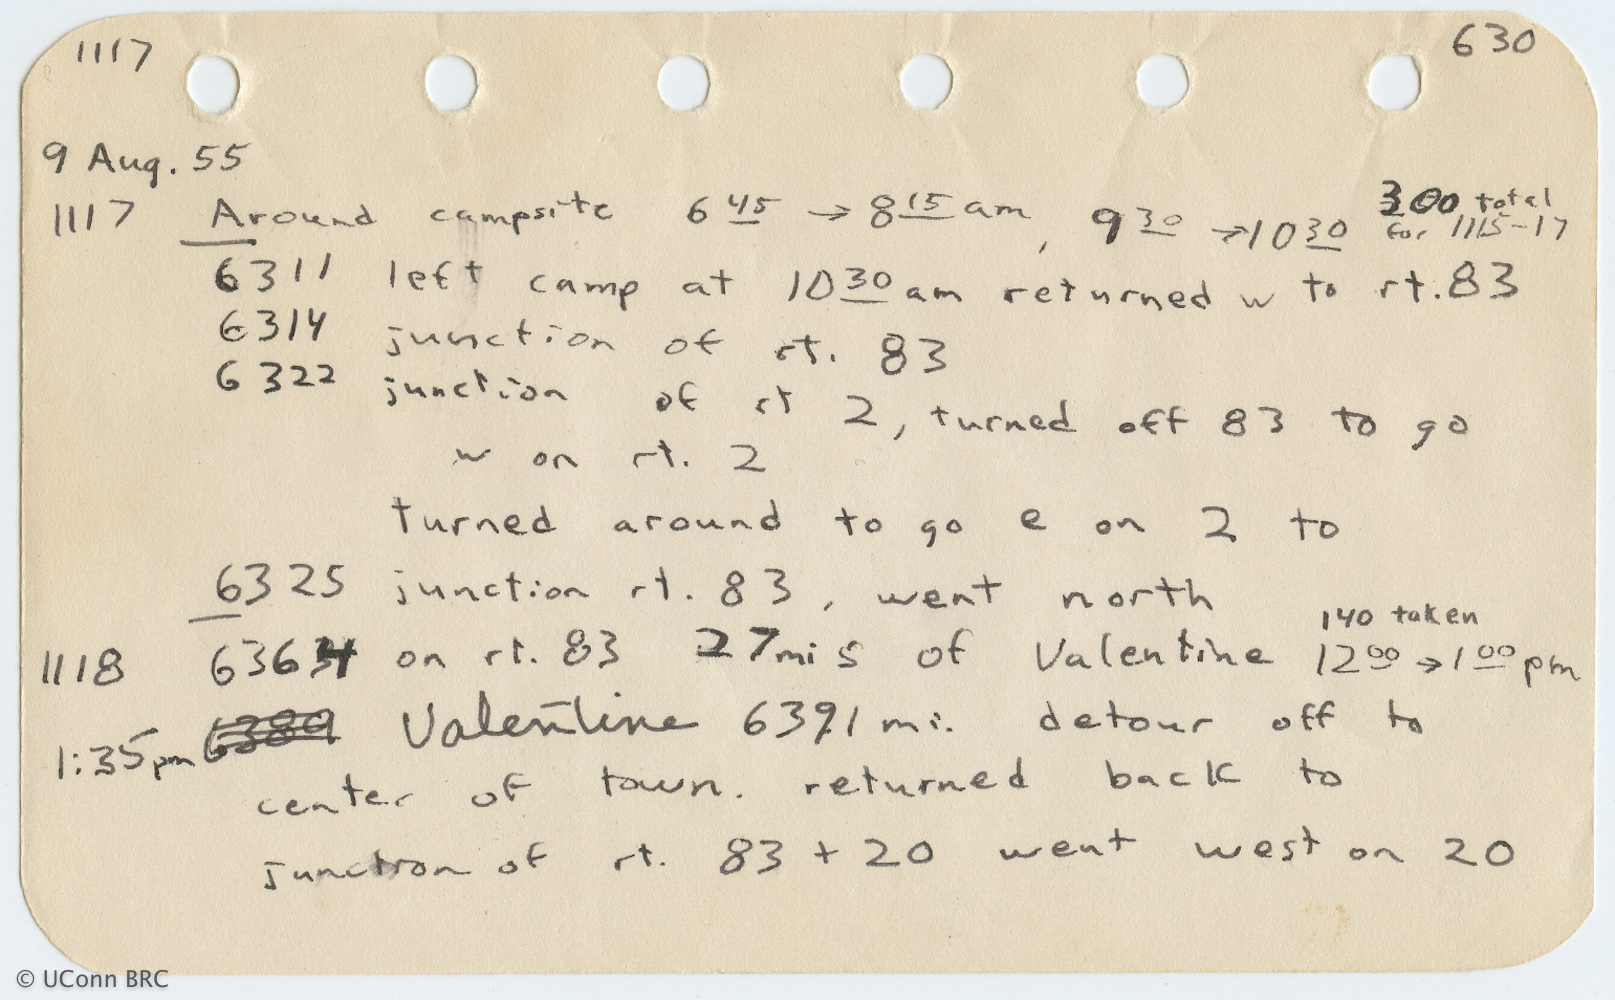 1117 630
9 Aug. 55
1117 Around campsite 6 45 → 8 15 am, 9 30 → 10 30 300 total
for 1115-17
6311 left camp at 10 30 am returned w to rt. 83
6314 junction of rt. 83
6322 junction of rt 2, turned off 83 to go
w on rt. 2
turned around to go e on 2 to
6325 junction rt. 83, went north
140 taken
1118 6364 on rt. 83 27 mi s of Valentine 12 00 → 1 00 pm
1:35pm 6389 Valentine 6391 mi. detour off to
center of town. returned back to
junction of rt. 83 + 20 went west on 20
© UConn BRC